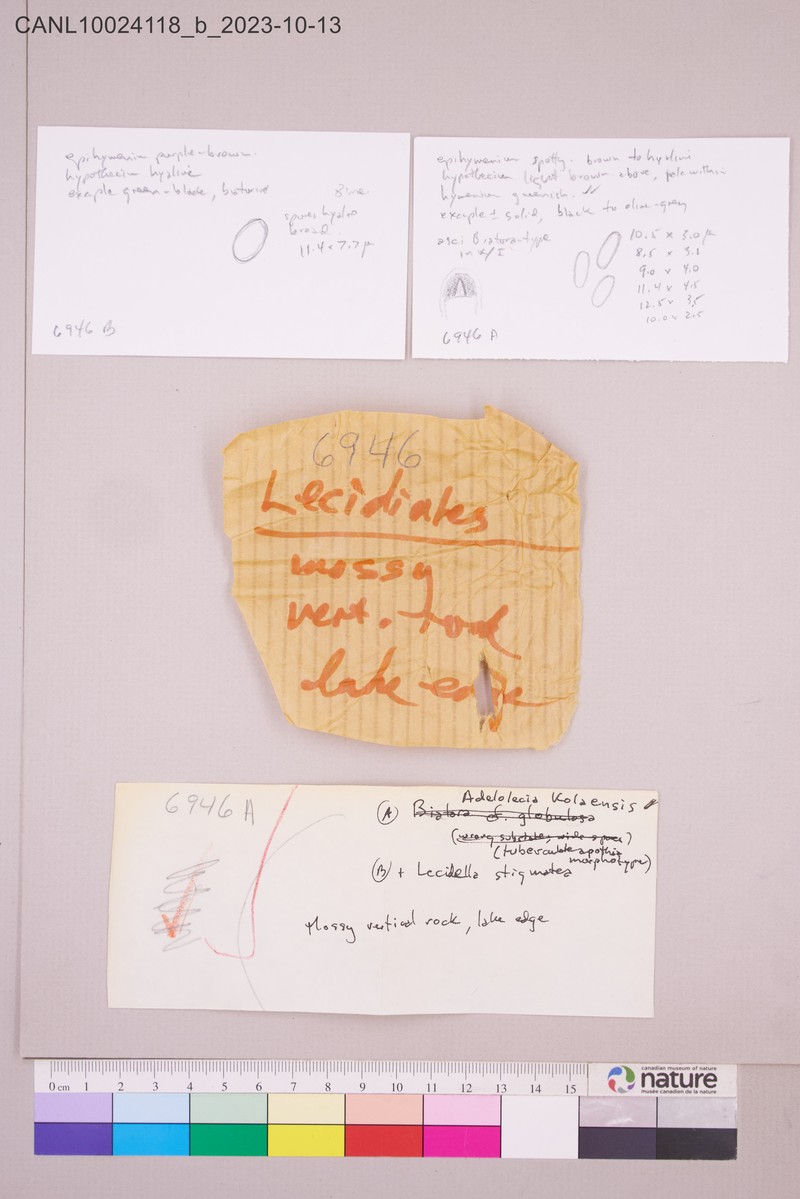 CANL10024118_b_2023-10-13
epihymenium purple-brown.
hypothecium hyaline
exciple green-black,
spores hyaline
broad
11.4 x 7.7 µ
6946 B
epihymenium spotty - brown to hyaline
hypothecium light brown above, pale within
hymenium greenish.
exciple ± solid, black to olive-grey
asci Biatora-type
in K/I
10.5 x 3.0 µ
8.5 x 3.1
9.0 x 4.0
11.4 x 4.5
12.5 x 3.5
10.0 x 2.5
6946 A
6946
Lecidiates
mossy
vert. rock
lake edge
6946 A
Adelolecia Kolaensis
(A) Biatora cf. globulosa
(wrong substrates, wide spores)
(tuberculate apothecia
morphotype)
(B) + Lecidella stigmatea
Mossy vertical rock, lake edge
0 cm 1 2 3 4 5 6 7 8 9 10 11 12 13 14 15
canadian museum of nature
nature
musée canadien de la nature